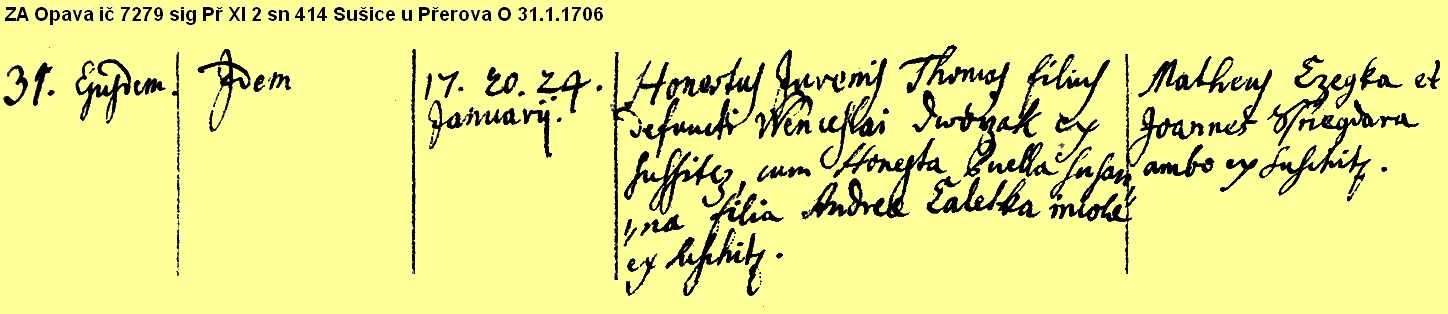 ZA Opava ič 7279 sig Př XI 2 sn 414 Sušice u Přerova O 31.1.1706
31. Ejusdem.
Idem
17. 20. 24.
Januarij.
Honestus Juvenis Thomas filius
defuncti Wenceslai Dworzak ex
Sussitz, cum Honesta Puella Susan
na filia Andreae incolae
ex Suschitz.
Matheus et
Joannes
ambo ex Suschitz.